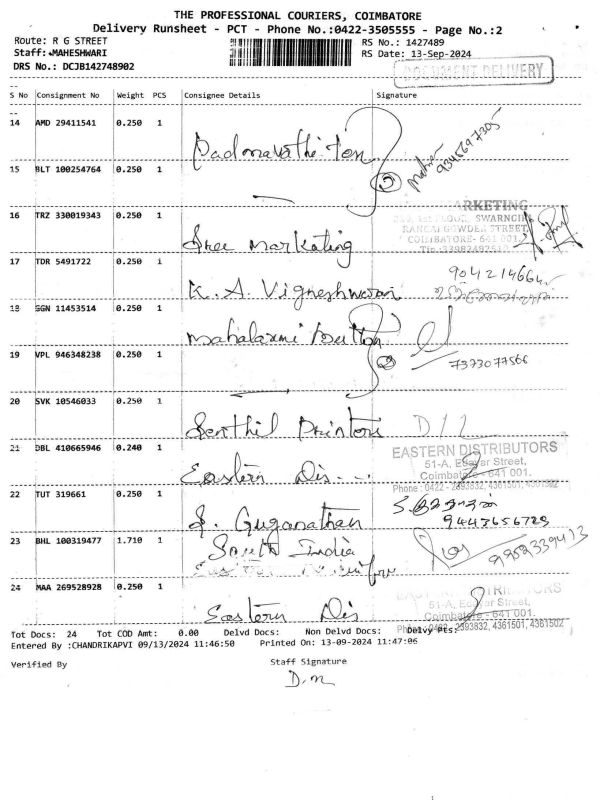 THE PROFESSIONAL COURIERS, COIMBATORE
Delivery Runsheet - PCT - Phone No.:0422-3505555 - Page No.:2
Route: R G STREET
RS No.: 1427489
Staff: MAHESHWARI
RS Date: 13-Sep-2024
DRS No.: DCJB142748902
DOCUMENT DELIVERY
S No Consignment No Weight PCS Consignee Details Signature
14 AMD 29411541 0.250 1 Padmavathi Ten
9345697305
15 BLT 100254764 0.250 1
16 TRZ 330019343 0.250 1 Sree Marketing
ARKETING
1st FLOOR, SWARNGIRI
RANGAI GOWDER STREET,
COIMBATORE- 641 001.
17 TDR 5491722 1 K. A. Vigneshwaran
9042146645
18 GGN 11453514 0.250 1 Mahalaxmi Button
19 VPL 946348238 0.250 1
7373077566
20 SVK 10546033 0.250 1 Senthil Printers
21 DBL 410665946 0.240 1 Eastern Dis
EASTERN DISTRIBUTORS
51-A, Street,
Coimbatore - 641 001.
Phone : 0422 - 2393832, 4361501, 4361502
22 TUT 319661 0.250 1 S. Guganathan
9443656728
23 BHL 100319477 1.710 1 South India
9952339413
24 MAA 269528928 0.250 1 Eastern Dis
51-A, Street,
Coimbatore - 641 001.
Phone : 0422 - 2393832, 4361501, 4361502
Tot Docs: 24 Tot COD Amt: 0.00 Delvd Docs: Non Delvd Docs: Delvy Pts:
Entered By :CHANDRIKAPVI 09/13/2024 11:46:50 Printed On: 13-09-2024 11:47:06
Verified By Staff Signature
D.M